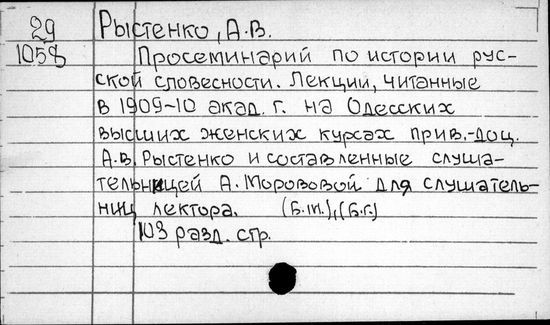 29 Рыстенко, А.В.
1058 Просеминарий по истории рус-
ской словесности. Лекции, читанные
в 1909-10 акад. г. на Одесских
высших женских курсах прив.-доц.
А.В. Рыстенко и составленные слуша-
тельницей А. Морововой для слушатель-
ниц лектора. (Б.м.),(Б.г.)
103 разд. стр.